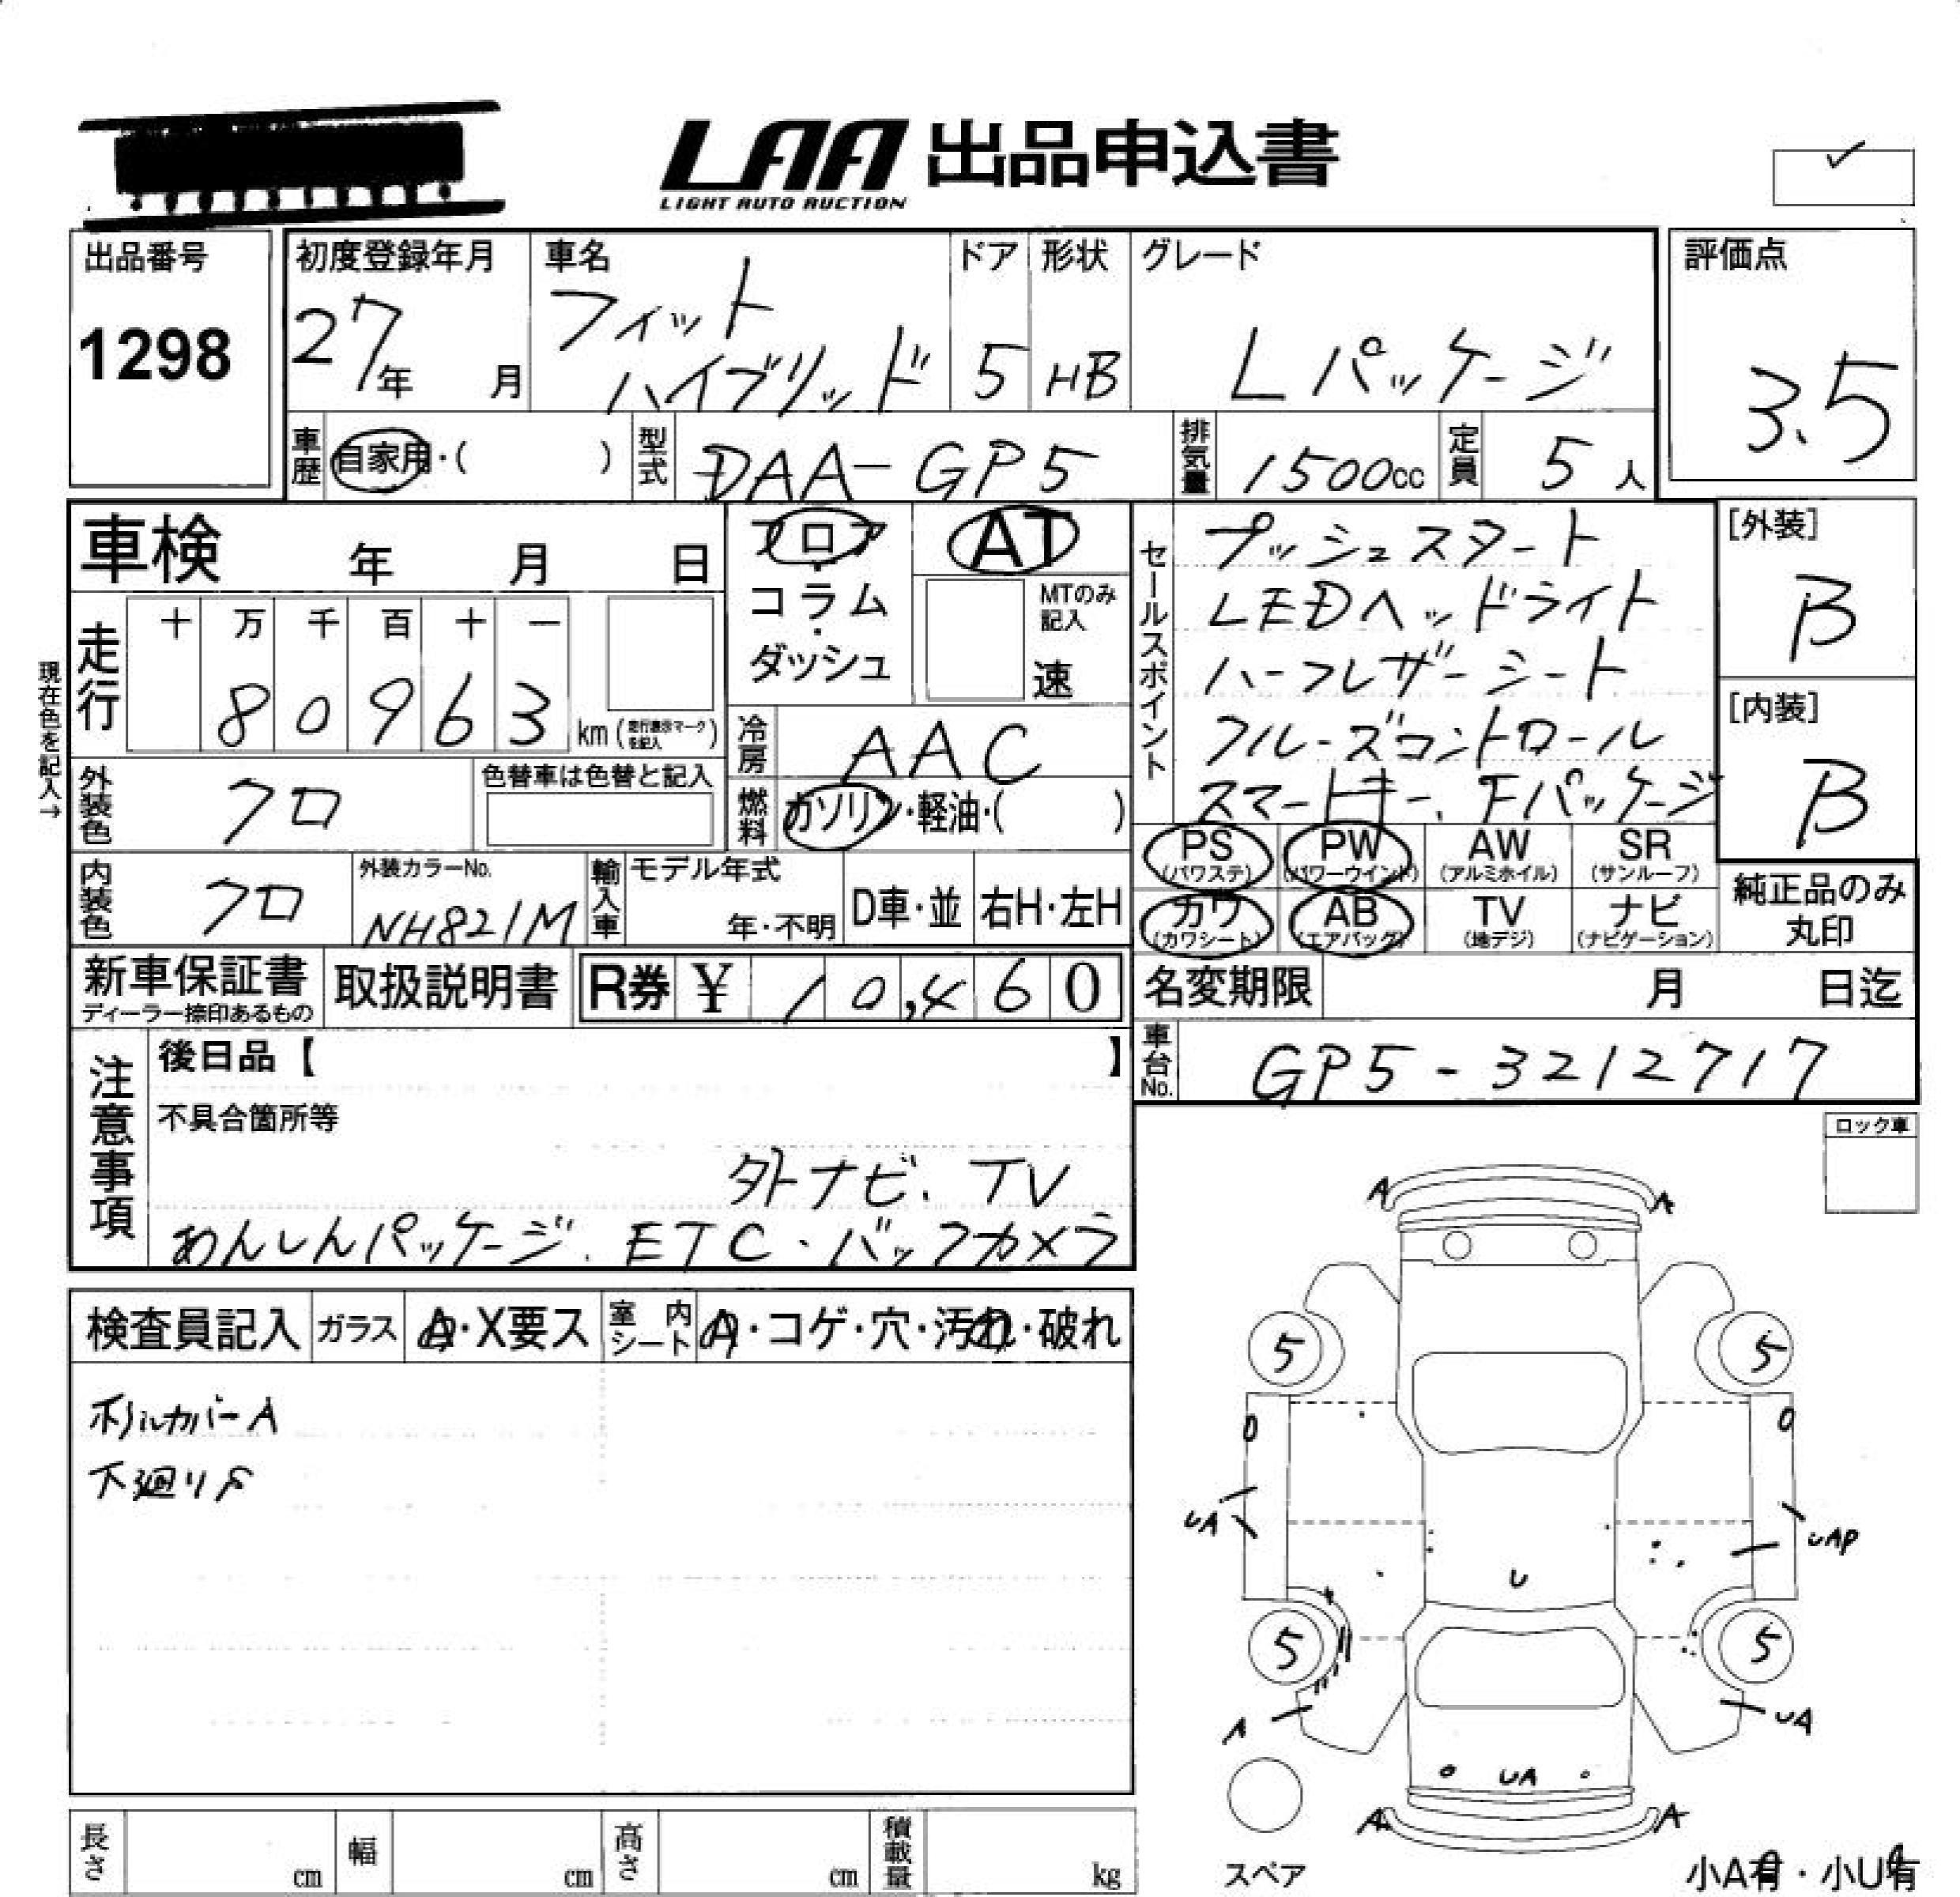 LAA 出品申込書
LIGHT AUTO AUCTION
出品番号
1298
初度登録年月
27年 月
車名
フィット
ハイブリッド
ドア
5
形状
HB
グレード
Lパッケージ
評価点
3.5
車歴 自家用・( )
型式 DAA-GP5
排気量 1500cc
定員 5人
車検 年 月 日
走行
十 万 千 百 十 一
8 0 9 6 3 km(走行表示マークを記入)
現在色を記入→
外装色 クロ
色替車は色替と記入
内装色 クロ
外装カラーNo.
NH821M
フロア・コラム・ダッシュ
AT
MTのみ記入
速
冷房 AAC
燃料 ガソリン・軽油・( )
輸入車 モデル年式
年・不明
D車・並
右H・左H
セールスポイント
プッシュスタート
LEDヘッドライト
ハーフレザーシート
クルーズコントロール
スマートキー、Fパッケージ
[外装]
B
[内装]
B
PS (パワステ)
PW (パワーウインド)
AW (アルミホイル)
SR (サンルーフ)
カワ (カワシート)
AB (エアバッグ)
TV (地デジ)
ナビ (ナビゲーション)
純正品のみ丸印
新車保証書
ディーラー捺印あるもの
取扱説明書
R券 ¥ 10,460
名変期限 月 日迄
車台No. GP5-3212717
注意事項
後日品【 】
不具合箇所等
外ナビ、TV
あんしんパッケージ、ETC・バックカメラ
ロック車
検査員記入
ガラス A・X要ス
室内シート A・コゲ・穴・汚れ・破れ
ホイルカバーA
下廻りS
A A
5 5
0 0
UA
UAP
U
5 5
A
UA
UA
A A
スペア
小A有・小U有
長さ cm
幅 cm
高さ cm
積載量 kg